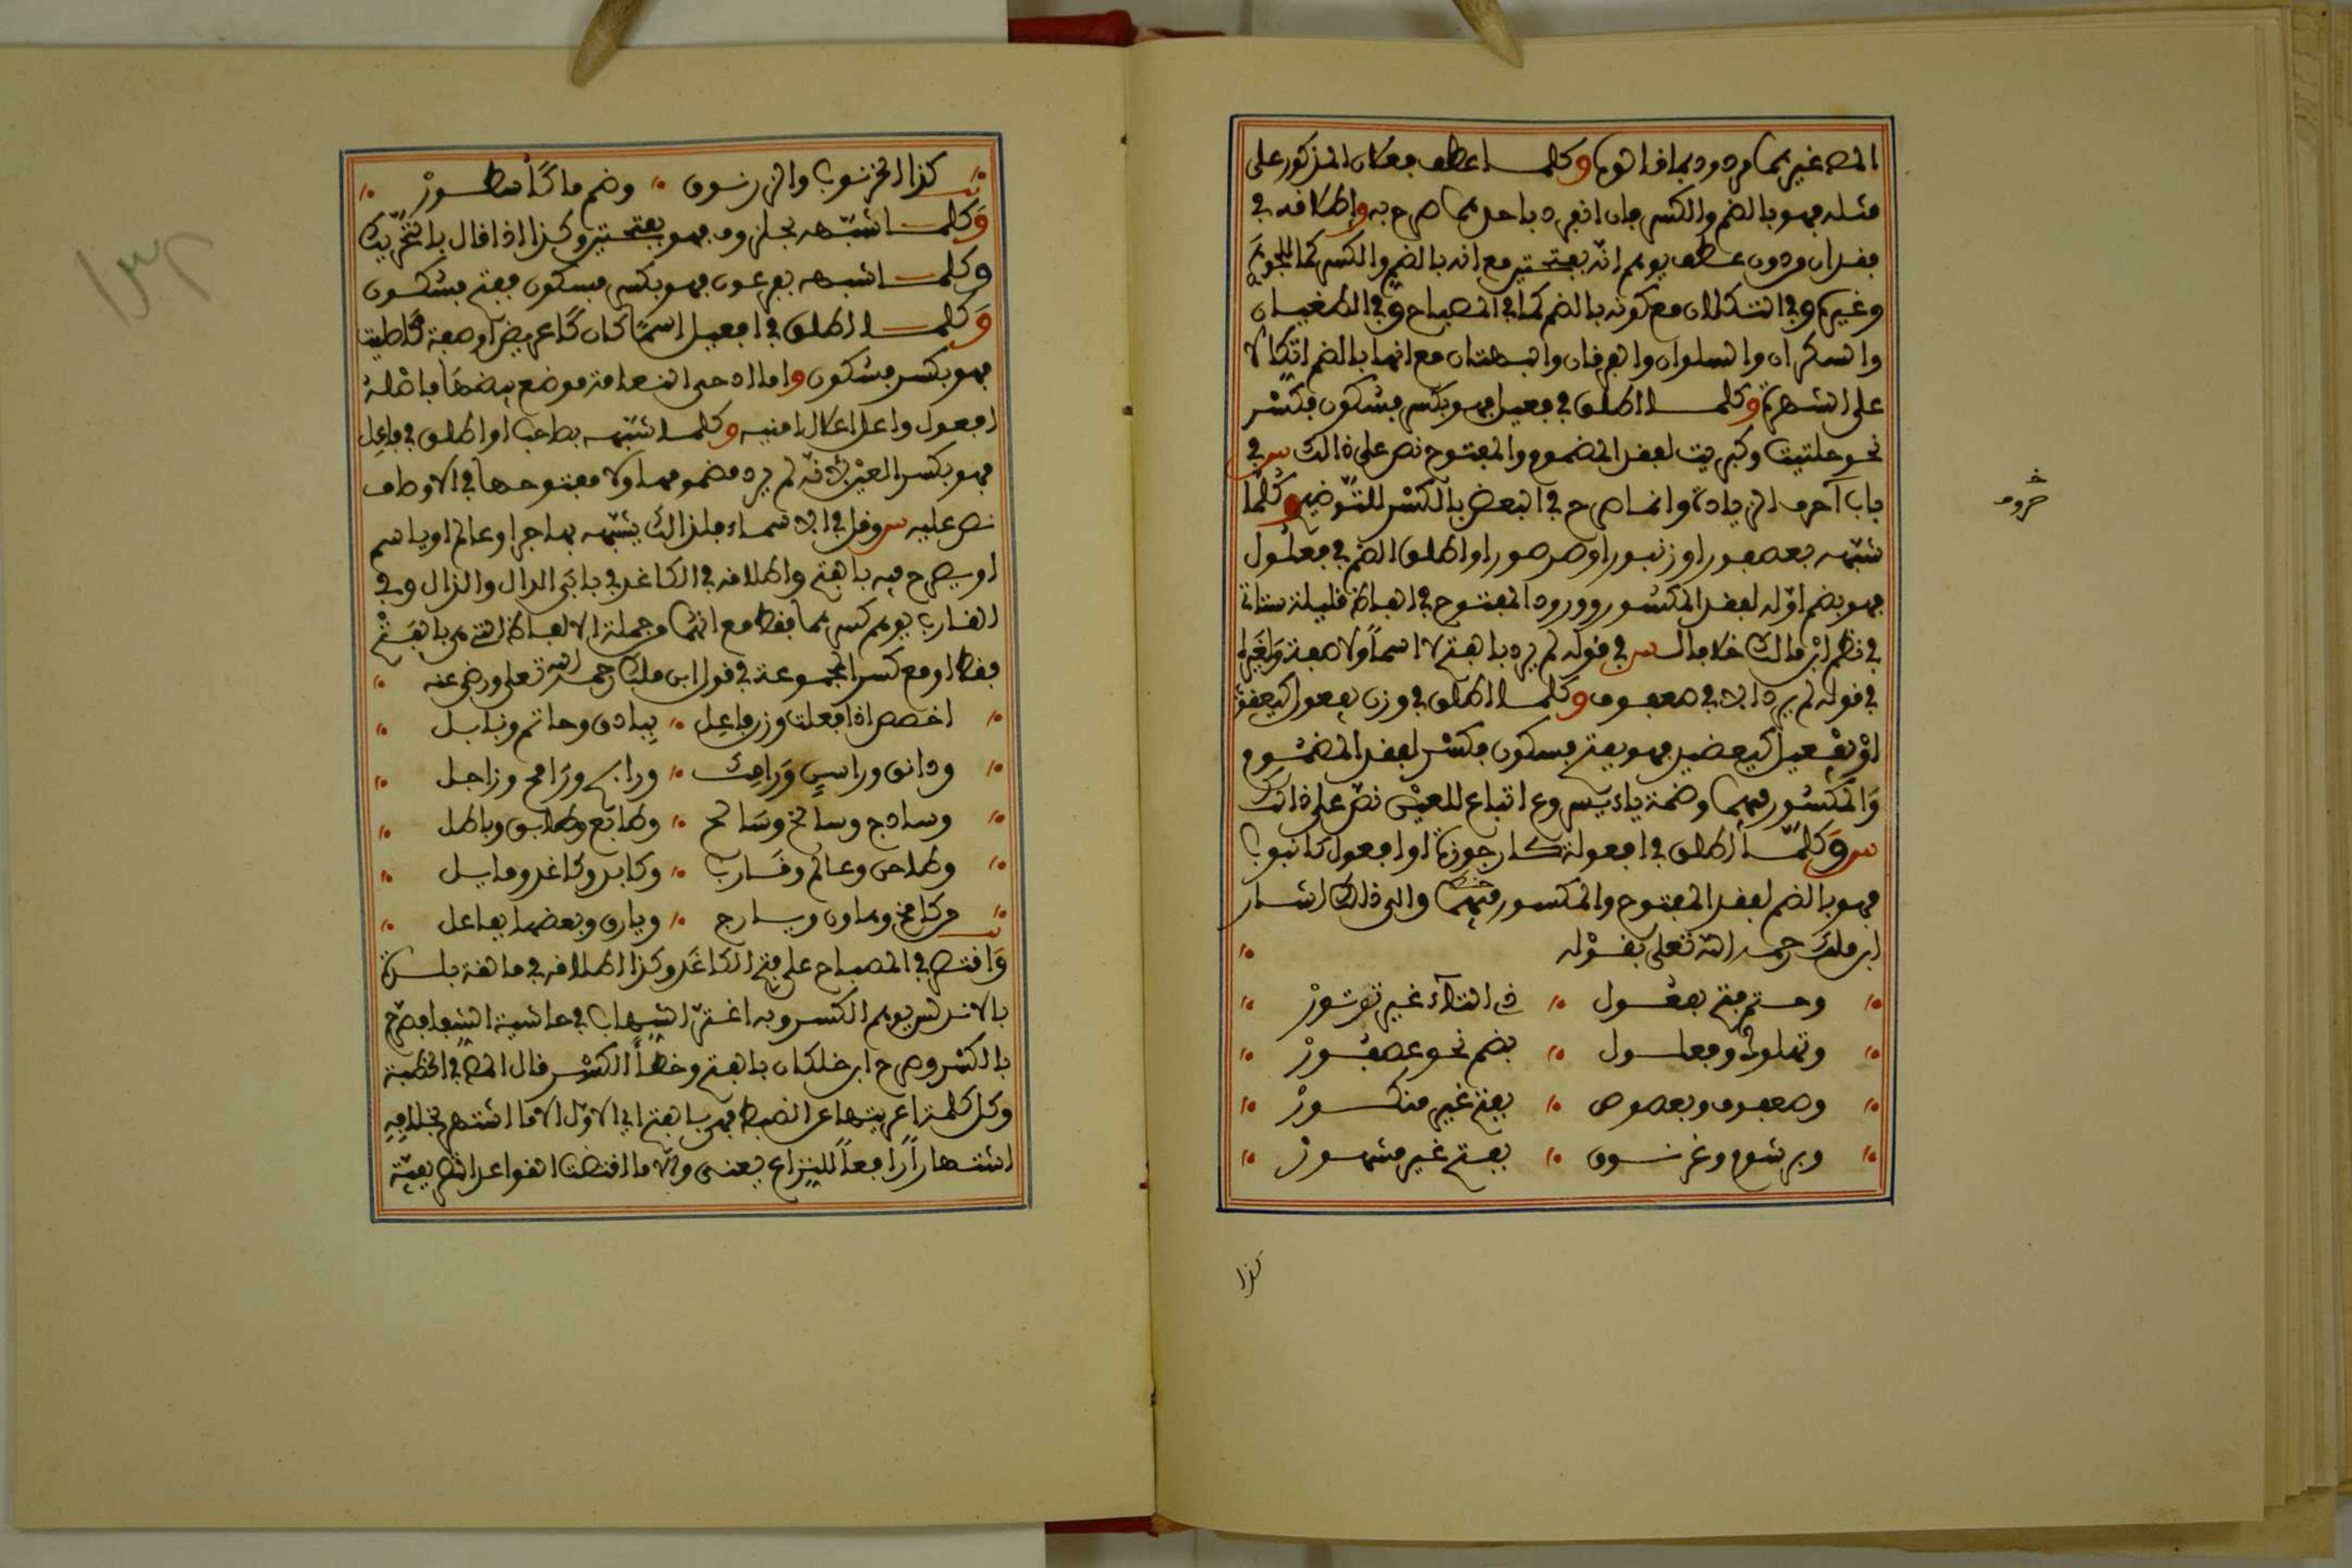 المص غيرهما مردود بما قدالوه وكلما عطف فعلان المذكور على
مثله فهو بالضم والكسر فان انفرد باحدهما صرح به واطلاقه في
فقدان ودون عطف يوهم انه بفتحتين مع انه بالضم والكسر كما للجوهري
وغيره وفي التكلان مع كونه بالضم كما في المصباح وفي الطغيان
والسكران والسلوان والعرفان والبهتان مع انها بالضم اتكالا
على الشهرة وكلما اطلق في فعيل فهو بكسر فسكون فكسر
نحو حلتيت وكبريت لفقد المضموم والمفتوح نص على ذالك س في
باب آحرف الزيادة وانما صرح في البعض بالكسر للتوضيح وكلما
شبّهه بعصفور او زنبور او صرصور او اطلق الضم في فعلول
فهو بضم اوّله لفقد المكسور وورود المفتوح في الفاظ قليلة ستاتي
في نظم ابن مالك خلافا لس في قوله لم يرد بالفتح لا اسماً ولا صفة ولغيره
في قوله لم يرد الا في صعفوق وكلما اطلق في وزن يفعول كيعفور
اوْ يفعيل كيعضيد فهو بفتح فسكون فكسر لفقد المضموم
والمكسور فيهما وضمة ياء يسروع اتباع للعين نصّ على ذالك
س وكلّما اطلق في افعولة كارجوزة او افعول كانبوب
فهو بالضم لفقد المفتوح والمكسور فيهما والى ذلك اشار
ابن ملك رحمه الله تعلى بقوله
وحتم فتح يفعول في التاء غير تؤثورْ
وتهلوك وفعلول بضم نحو عصفورْ
وصعفوق وبعصوص بفتح غير منكورْ
وبرشوم وغرنوق بفتح غير مشهورْ
خروف
كذا
كذا الخرنوب والزرنوق وضم ما كأسطورْ
وكلما شبّهه بحلزوف فهو بفتحتين وكذا اذا قال بالتحريك
وكلما شبهه بفرعون فهو بكسر فسكون ففتح فسكون
وكلما اطلق في افعيل اسمًا كان كاعريض او صفة كاصليت
فهو بكسر فسكون واما ادحى النعامة موضع بيضها فاصله
افعول واعل اعلال امنيه وكلما شبّهه بصاحب او اطلق في فاعل
فهو بكسر العين لانه لم يرد مضمومها ولا مفتوحها في الاوصاف
نص عليه س وقل في الاسماء فلذالك يشبّهه بهاجر او عالم او ياسم
او يصرح فيه بالفتح واطلاقه في الكاغد في بابَي الدال والذال وفي
القارب يوهم كسرهما فقط مع انهما من جملة الالفاظ التي هي بالفتح
فقط او مع كسر المجموعة في قول ابن ملك رحمه الله تعلى ورضي عنه
اخصص اذا فعلت وزن فاعل ببادق وخاتم ونابل
ودانق وراسن ورامك ورانج ورامج وزاجل
وساذج وسالخ وشالم وطابع وطابق وباطل
وطاجن وعالم وقارب وكابر وكاغد ومايل
مركامخ وهاون ويارج ويارق وبعضها بفاعل
واقتصر في المصباح على فتح الكاغد وكذا اطلاقه في مالقة بلدة
بالاندلس يوهم الكسر وبه اغترّ الشهاب في حاشية الشفا فصرّح
بالكسر وصرح ابن خلكان بالفتح وخطأ الكسر قال المص في الخطبة
وكل كلمة عريتها عن الضبط فهي بالفتح اي الاوّل الا ما اشتهر بخلافه
اشتهاراً رافعاً للنزاع يعني والا ما اقتضت القواعد التصريفية